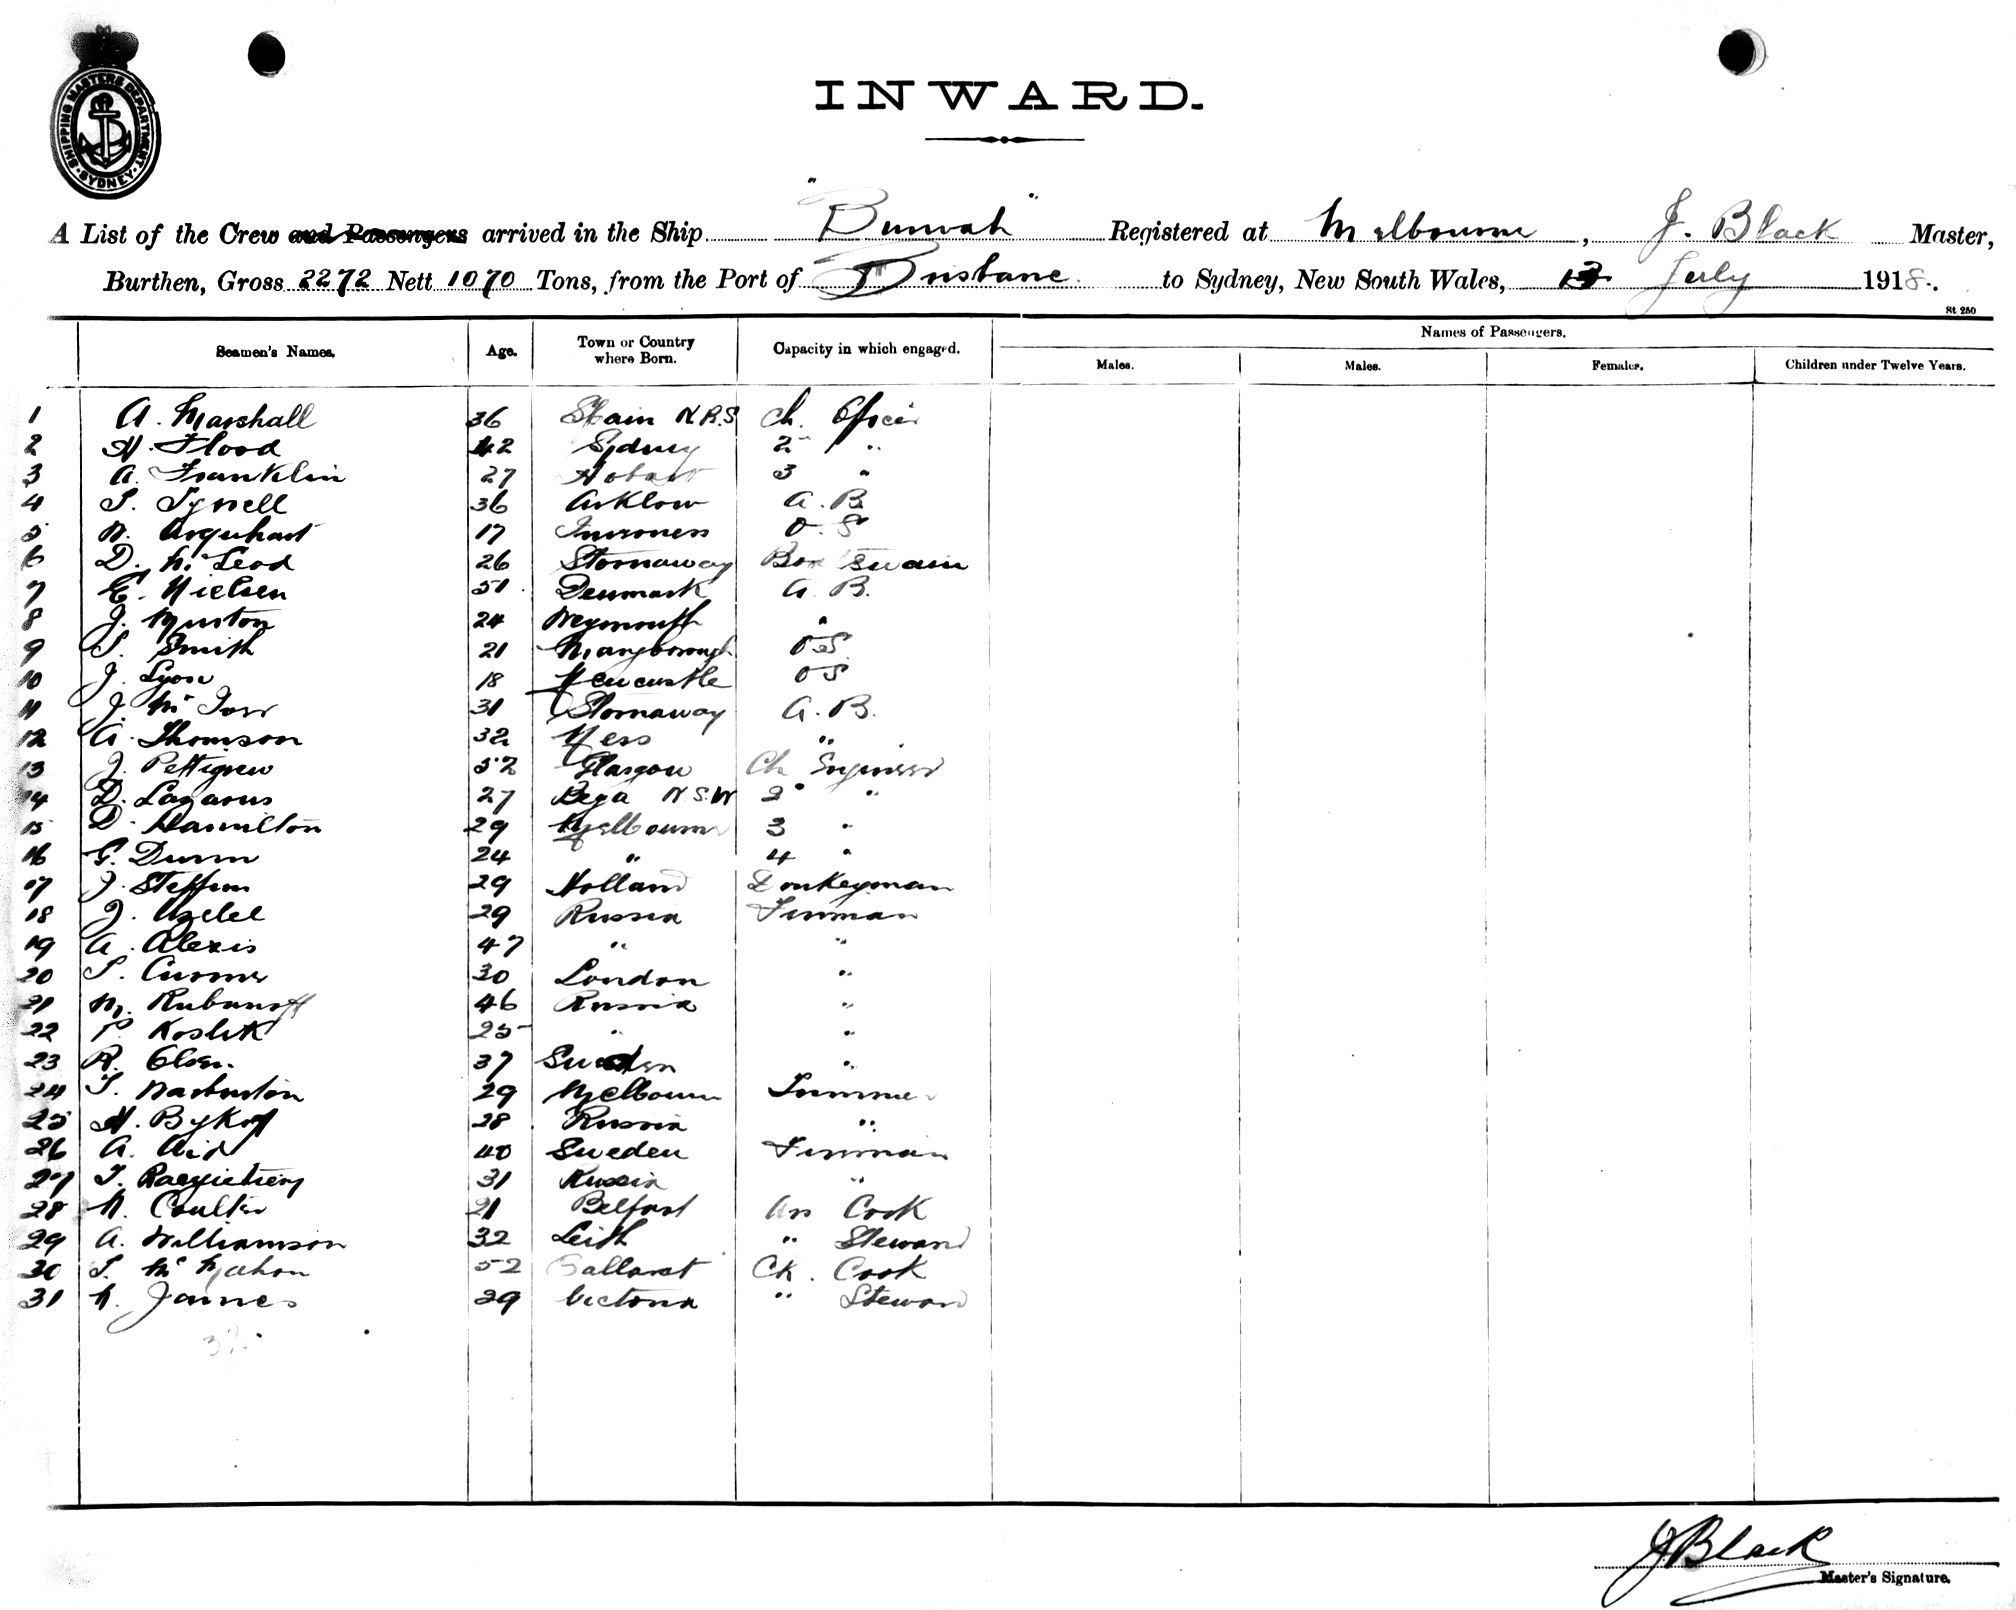 SHIPPING MASTERS DEPARTMENT
SYDNEY
INWARD.
A List of the Crew and Passengers arrived in the Ship "Burwah" Registered at Melbourne, J. Black Master,
Burthen, Gross 2272 Nett 1070 Tons, from the Port of Brisbane to Sydney, New South Wales, July 1918.
St 250
Seamen's Names. Age. Town or Country where Born. Capacity in which engaged. Names of Passengers.
Males. Males. Females. Children under Twelve Years.
1 A. Marshall 36 Ch. Officer
2 H. Flood 42 Sydney 2 "
3 A. Franklin 27 Hobart 3 "
4 36 Arklow A.B.
5 Urquhart 17 Inverness O.S
6 D. McLeod 26 Stornaway Boatswain
7 E. Nielsen 51 Denmark A.B.
8 J. 24 Weymouth "
9 S. Smith 21 Maryborough O.S.
10 J. Lyon 18 Newcastle O S
11 J. Mc 31 Stornaway A.B.
12 A. Thomson 32 Ness "
13 J. Pettigrew 52 Glasgow Ch Engineer
14 D. Lazarus 27 Bega N.S.W 2 "
15 D. Hamilton 29 Melbourne 3 "
16 G. Dunn 24 " 4 "
17 J. Steffen 29 Holland Donkeyman
18 J. 29 Russia Fireman
19 A. Alexis 47 " "
20 30 London "
21 M. Rubanoff 46 Russia "
22 P. 25 " "
23 R. Olsen 37 Sweden "
24 Warburton 29 Melbourne Trimmer
25 Bykoff 28 Russia "
26 A. 40 Sweden Fireman
27 31 Russia "
28 Coulter 21 Belfast Ass Cook
29 A. Williamson 32 Leith " Steward
30 McMahon 52 Ballarat Ch. Cook
31 James 29 Victoria " Steward
J Black
Master's Signature.